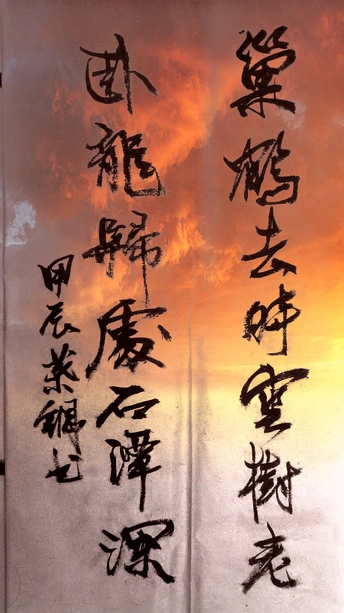 巢鶴去時雲樹老
卧龍歸處石潭深
甲辰葉書